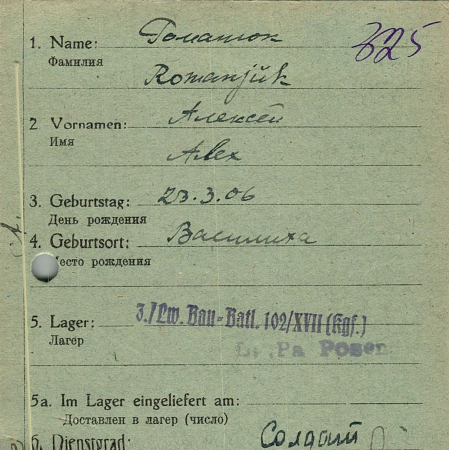 1. Name: Романюк 825
Фамилия
Romanjuk
2. Vornamen: Алексей
Имя
Alex
3. Geburtstag: 23.3.06
День рождения
4. Geburtsort: Василиха
Место рождения
5. Lager: 3./Lw. Bau-Batl. 102/XVII (Kgf.)
Лагер
Pa Posen
5a. Im Lager eingeliefert am:
Доставлен в лагер (число)
6. Dienstgrad: Солдат